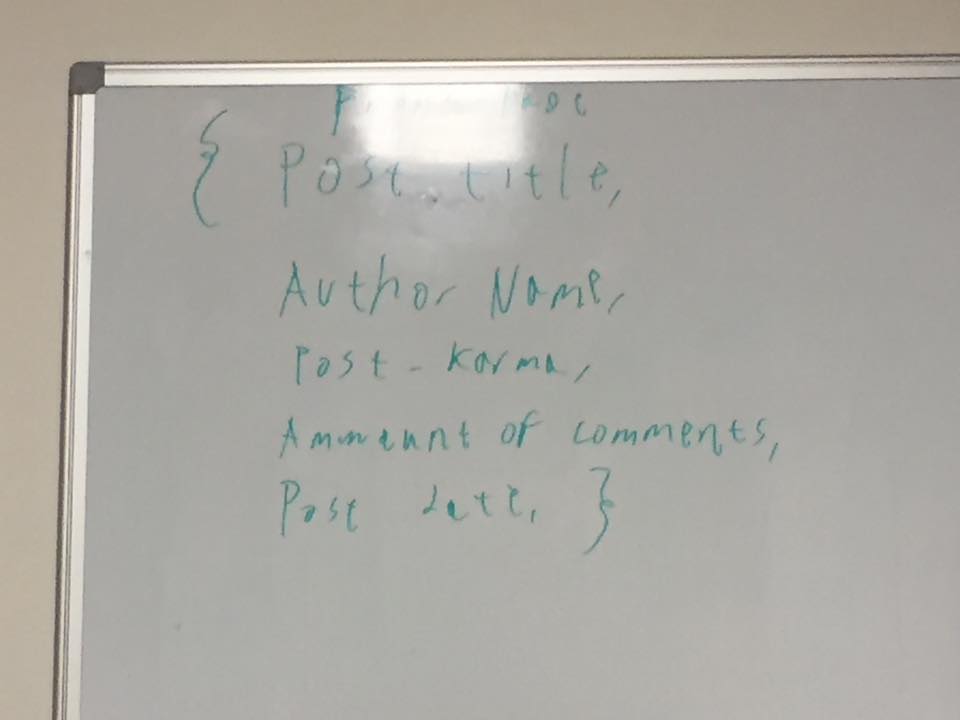 { Post title,
Author Name,
Post - Karma,
Ammount of comments,
Post date, }